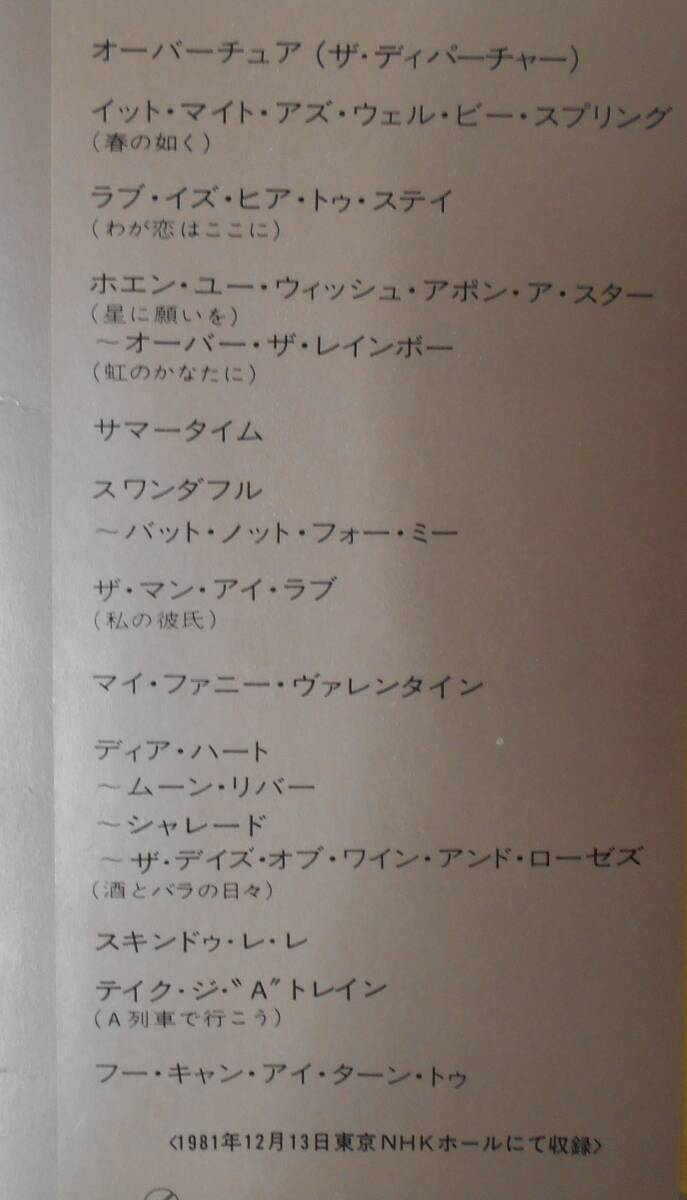 オーバーチュア(ザ・ディパーチャー)
イット・マイト・アズ・ウェル・ビー・スプリング
(春の如く)
ラブ・イズ・ヒア・トゥ・ステイ
(わが恋はここに)
ホエン・ユー・ウィッシュ・アポン・ア・スター
(星に願いを)
〜オーバー・ザ・レインボー
(虹のかなたに)
サマータイム
スワンダフル
〜バット・ノット・フォー・ミー
ザ・マン・アイ・ラブ
(私の彼氏)
マイ・ファニー・ヴァレンタイン
ディア・ハート
〜ムーン・リバー
〜シャレード
〜ザ・デイズ・オブ・ワイン・アンド・ローゼズ
(酒とバラの日々)
スキンドゥ・レ・レ
テイク・ジ・〝A〞トレイン
(A列車で行こう)
フー・キャン・アイ・ターン・トゥ
〈1981年12月13日東京NHKホールにて収録〉